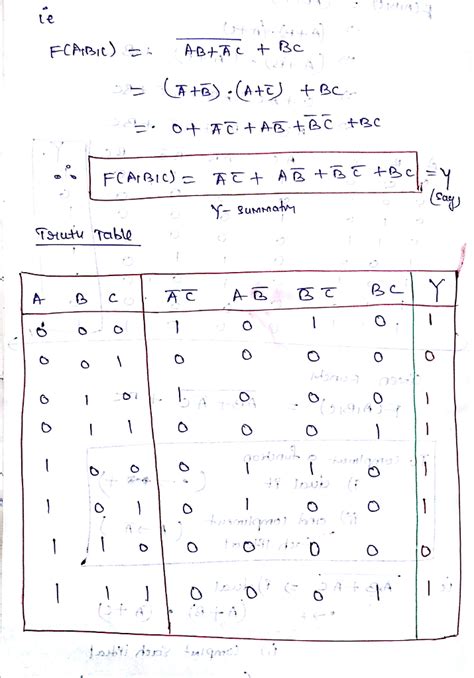 ie
F(A,B,C) = \overline{AB+\overline{A}C} + BC
= (\overline{A}+\overline{B}).(A+\overline{C}) + BC
= 0 + \overline{A}\overline{C} + A\overline{B} + \overline{B}\overline{C} + BC
∴ F(A,B,C) = \overline{A}\overline{C} + A\overline{B} + \overline{B}\overline{C} + BC = Y (say)
Y - summatn
Truth Table
A B C \overline{A}\overline{C} A\overline{B} \overline{B}\overline{C} BC Y
0 0 0 1 0 1 0 1
0 0 1 0 0 0 0 0
0 1 0 1 0 0 0 1
0 1 1 0 0 0 1 1
1 0 0 0 1 1 0 1
1 0 1 0 1 0 0 1
1 1 0 0 0 0 0 0
1 1 1 0 0 0 1 1